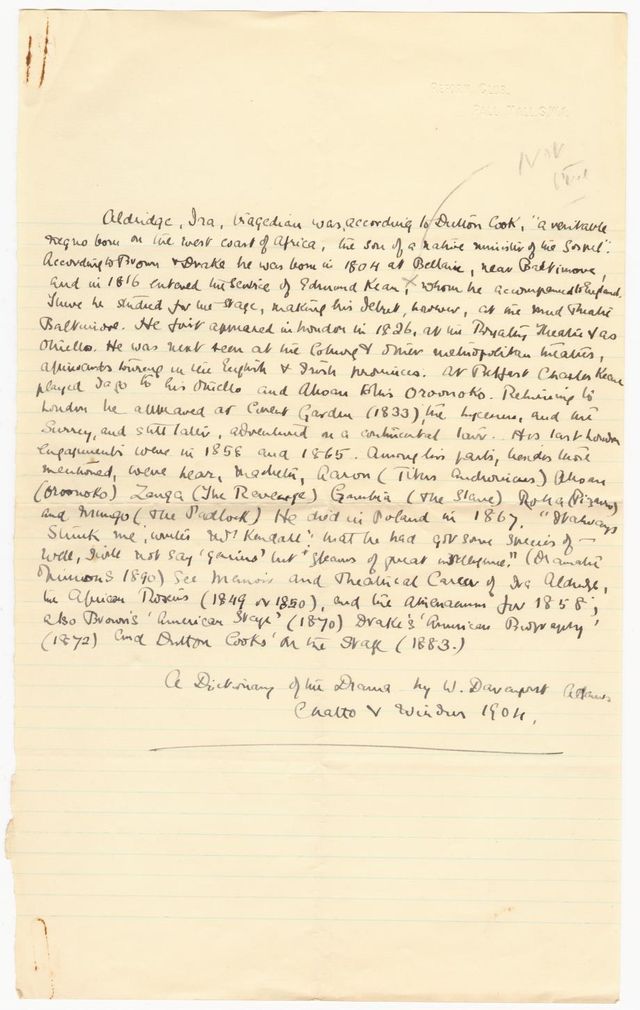 REFORM CLUB,
PALL MALL, S.W.
Aldridge, Ira, tragedian was, according to Dutton Cook, "a veritable
negro born on the west coast of Africa, the son of a native minister of the Gospel".
According to Brown & Drake he was born in 1804 at Bellair, near Baltimore,
and in 1816 entered the service of Edmund Kean, whom he accompanied to England.
There he studied for the stage, making his debut, however, at the mud Theatre
Baltimore. He first appeared in London in 1826, at the Royalty Theatre & as
Othello. He was next seen at the Coburg & other metropolitan theatres,
afterwards touring in the English & Irish provinces. At Belfast Charles Kean
played Iago to his Othello and Aboan to his Oroonoko. Returning to
London he appeared at Covent Garden (1833), the Lyceum, and the
Surrey, and still later, adventured on a continental tour. His last London
engagements were in 1858 and 1865. Among his parts, besides those
mentioned, were Lear, Macbeth, Aaron (Titus Andronicus) Aboan
(Oroonoko) Zanga (The Revenge) Gambia (The Slave) Rolla (Pizarro)
and Mungo (The Padlock) He died in Poland in 1867. "It always
struck me, writes Mrs Kendall "that he had got some species of –
well, I will not say 'genius' but "gleams of great intelligence." (Dramatic
Opinions 1890) See Memoir and Theatrical Career of Ira Aldridge,
the African Roscius (1849 or 1850), and the Athenaeum for 1858;
also Brown's 'American Stage' (1870) Drake's 'American Biography'
(1872) and Dutton Cook's 'On the Stage (1883.)
A Dictionary of the Drama by W. Davenport Adams
Chatto & Windus 1904.